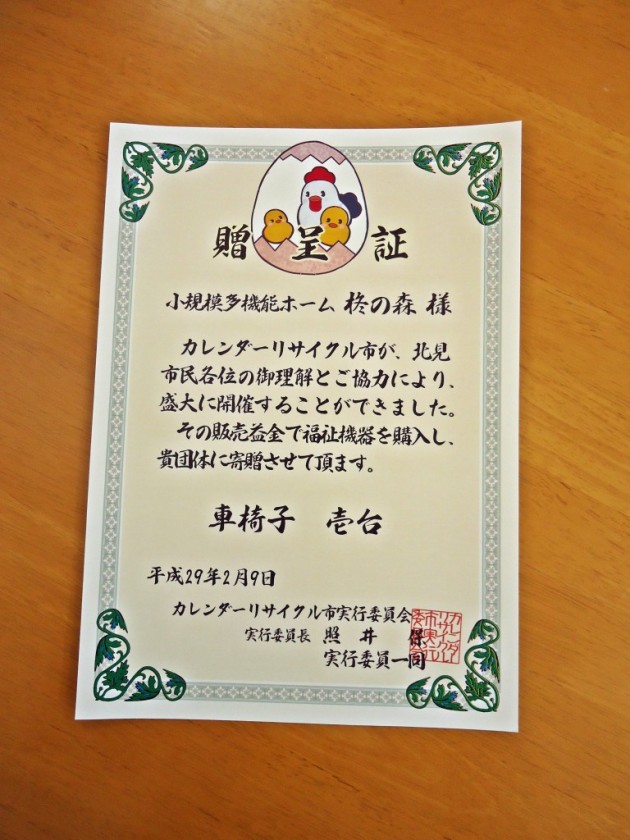 贈呈証
小規模多機能ホーム 柊の森 様
カレンダーリサイクル市が、北見
市民各位の御理解とご協力により、
盛大に開催することができました。
その販売益金で福祉機器を購入し、
貴団体に寄贈させて頂ます。
車椅子 壱台
平成29年2月9日
カレンダーリサイクル市実行委員会
実行委員長 照井 保
実行委員一同
カレンダー
リサイクル
市実行
委員会